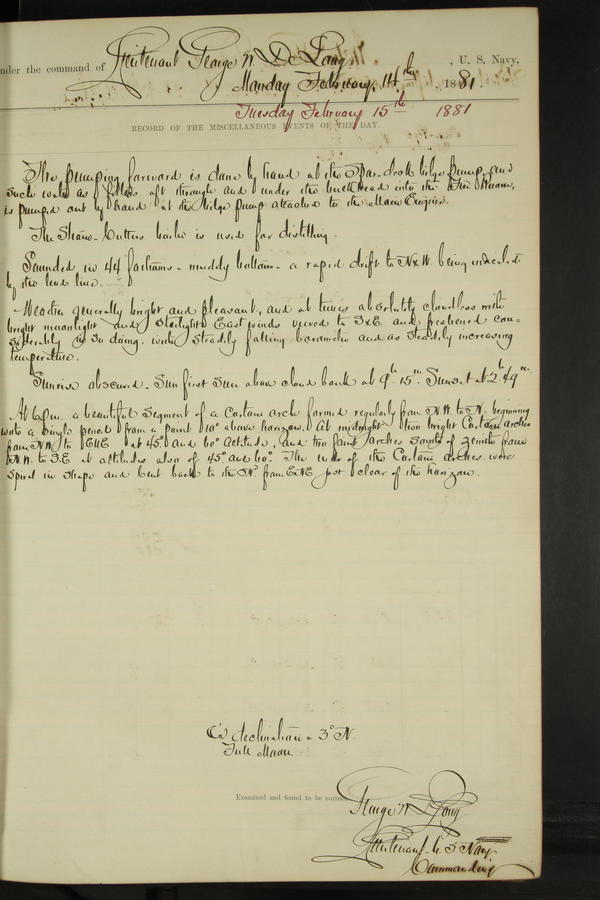 under the command of Lieutenant George W De Long, U. S. Navy,
Monday February 14th, 1881.
Tuesday February 15th 1881
RECORD OF THE MISCELLANEOUS EVENTS OF THE DAY.
The pumping forward is done by hand at the Spar-deck bilge pump, and
such water as filters aft through and under the bulkhead into the Fire Room,
is pumped out by hand at the bilge pump attached to the Main Engine.
The Steam-Cutters boiler is used for distilling.
Sounded in 44 fathoms - muddy bottom - a rapid drift to NxW. being indicated
by the lead line.
Weather generally bright and pleasant, and at times absolutely cloudless with
bright moonlight and Starlight. East winds veered to SxE. and freshened con-
siderably in so doing, with steadily falling barometer and as steadily increasing
temperature.
Sunrise obscured - Sun first seen above cloud bank at 9h 15m. Sunset at 2h 49m
At 6 pm. a beautiful Segment of a Curtain arch formed regularly from N.W. to N. beginning
with a single pencil from a point 10° above horizon. At midnight two bright Curtain arches
from N.W. to ENE at 45° and 60° altitude, and two faint arches South of zenith from
N.W. to S.E at altitudes also of 45° and 60°. The ends of the Curtain arches were
Spiral in shape and bent back to the Nd. from ENE just clear of the horizon.
declination = 3° N
Full Moon.
Examined and found to be correct.
George W De Long
Lieutenant U. S Navy
Commanding